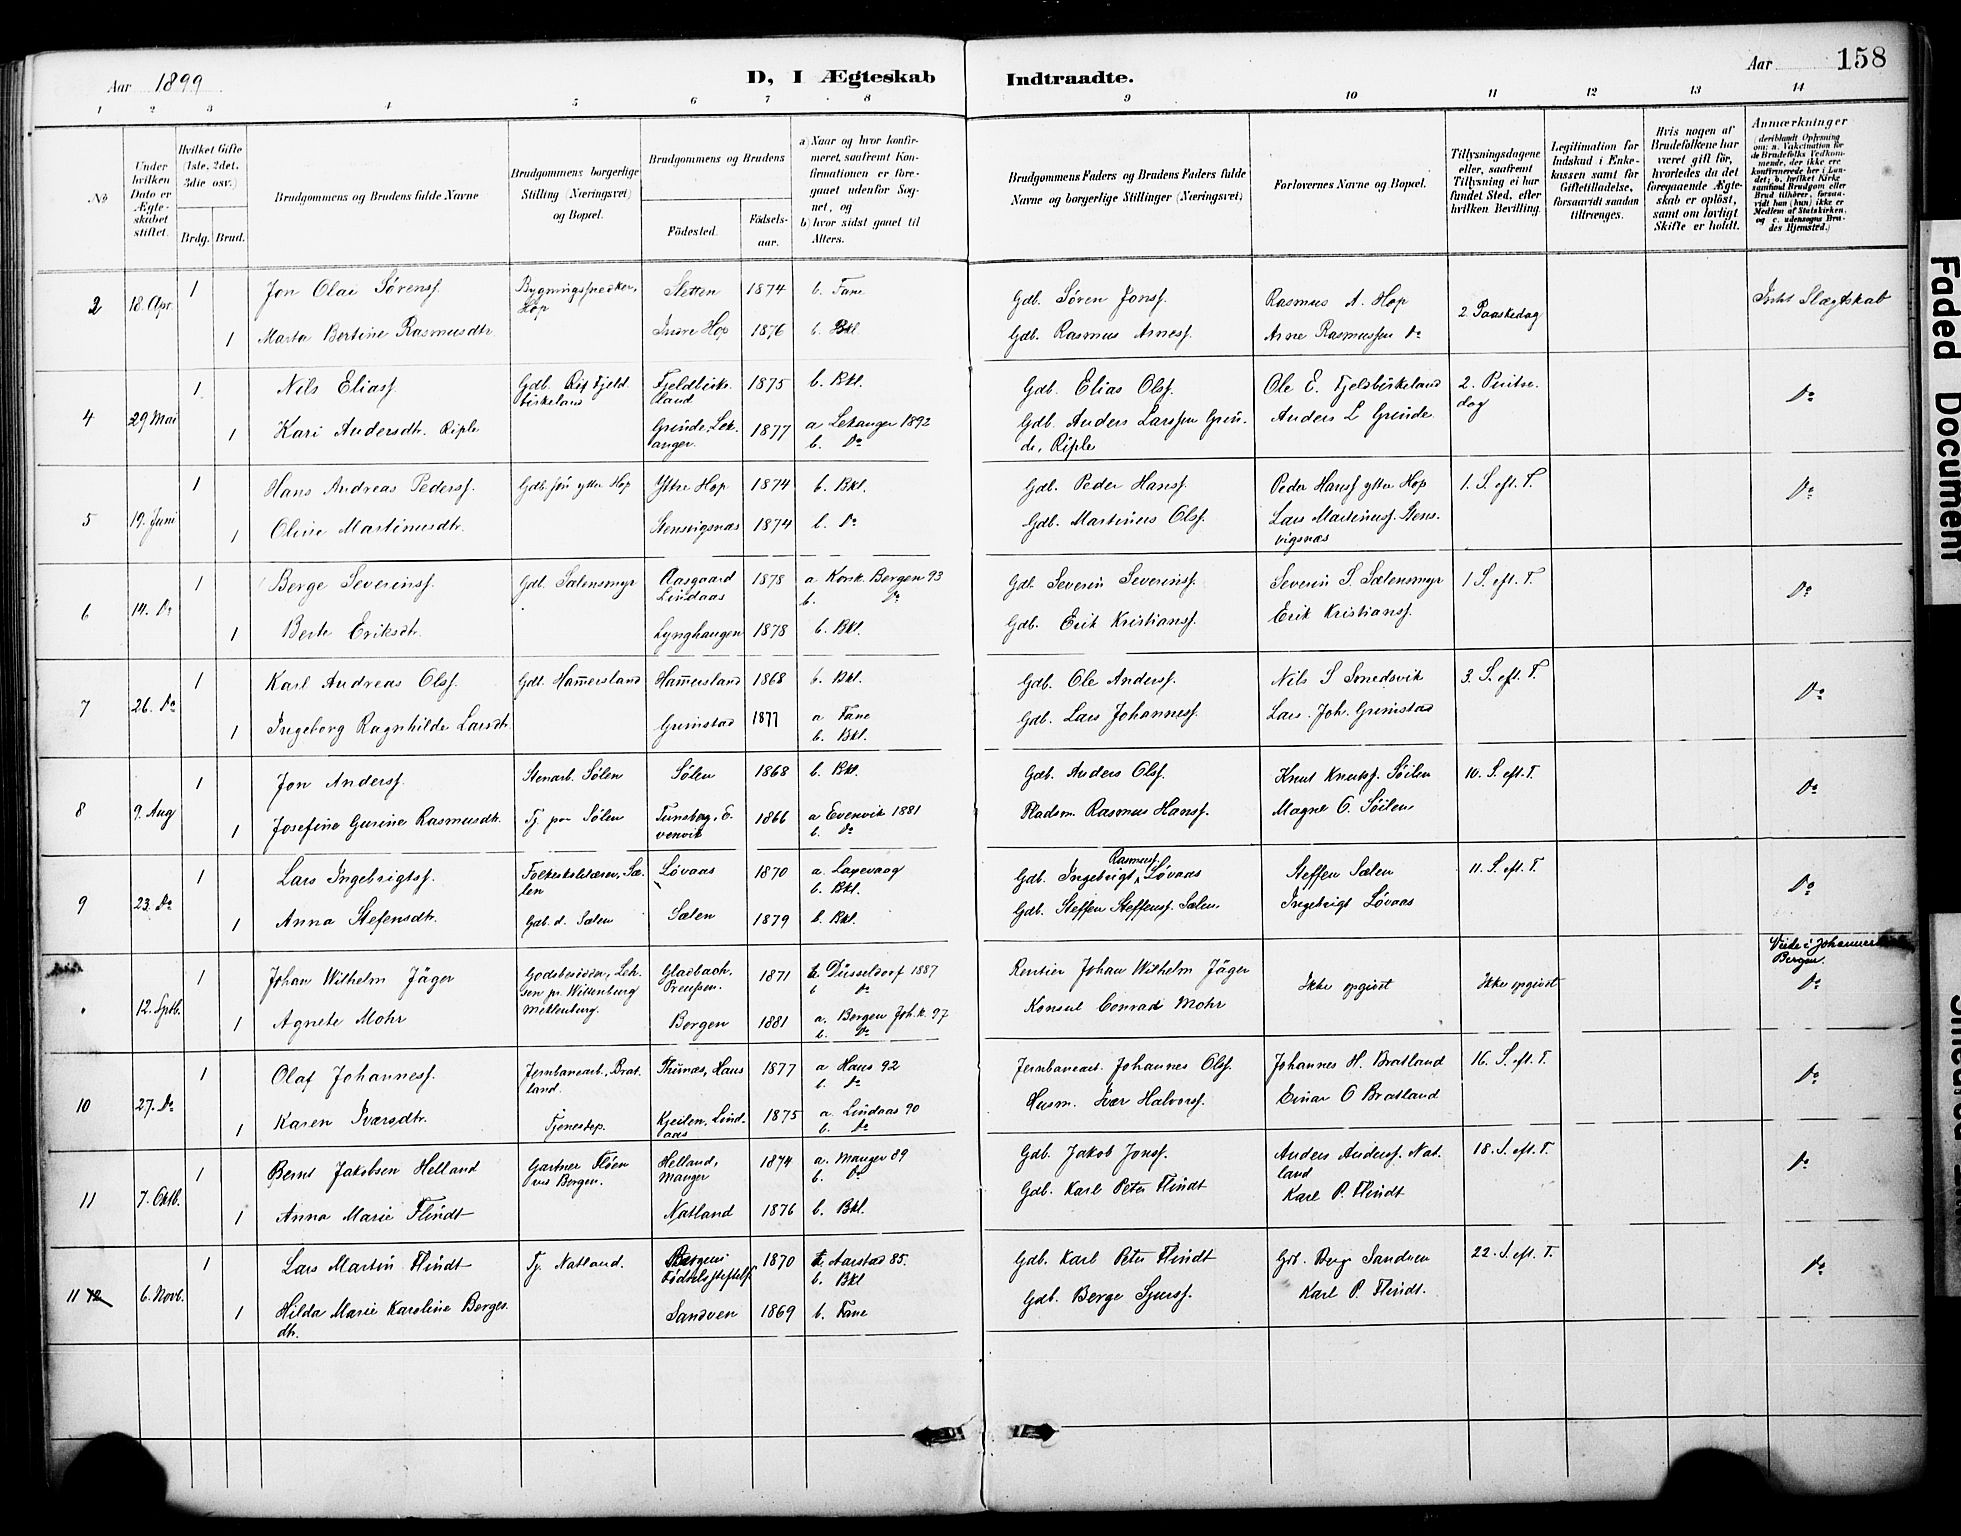 158
Aar 1899
D, I Ægteskab Indtraadte.
Aar
1 2 3 4 5 6 7 8 9 10 11 12 13 14
No
Under hvilken Dato er Ægteskabet stiftet.
Hvilket Gifte (1ste, 2det, 3die osv.)
Brdg. Brud.
Brudgommens og Brudens fulde Navne
Brudgommens borgerlige Stilling (Næringsvei) og Bopæl.
Brudgommens og Brudens
Fødested. Fødselsaar.
a) Naar og hvor konfirmeret, saafremt Konfirmationen er foregaaet udenfor Sognet, og
b) hvor sidst gaaet til Alters.
Brudgommens Faders og Brudens Faders fulde Navne og borgerlige Stillinger (Næringsvei)
Forlovernes Navne og Bopæl.
Tillysningsdagene eller, saafremt Tillysning ei har fundet Sted, efter hvilken Bevilling.
Legitimation for Indskud i Enkekassen samt for Giftetilladelse, forsaavidt saadan tiltrænges.
Hvis nogen af Brudefolkene har været gift før, hvorledes da det foregaaende Ægteskab er opløst, samt om lovligt Skifte er holdt.
Anmærkninger (deriblandt Oplysning om: a. Vakcination for de Brudefolks Vedkommende, der ikke ere konfirmerede her i Landet; b. hvilket Kirkesamfund Brudgom eller Brud tilhører, forsaavidt han (hun) ikke er Medlem af Statskirken, og c. udensogns Brudes Hjemsted.)
2 18. Apr. 1 Jon Olai Sørensf. Bygningssnedker, Hop Sletten 1874 b. Fane Gdb. Søren Jonsf. Rasmus A. Hop 2. Paaskedag Intet Slægtskab
1 Marta Bertine Rasmusdtr. Indre Hop 1876 b. Bkl. Gdb. Rasmus Arnesf. Arne Rasmussen Do
4 29 Mai 1 Nils Eliasf. Gdb. Fjeldbirkeland Fjeldbirkeland 1875 b. Bkl. Gdb. Elias Olsf. Ole E. Fjeldbirkeland 2. Pintsedag Do
1 Kari Andersdtr. Riple Grinde, Lekanger. 1877 a Lekanger 1892 b. Do Gdb. Anders Larssen Grinde, Riple Anders L Grinde
5 19. Juni 1 Hans Andreas Pedersf. Gdb. søn ytter Hop Yttre Hop 1874 b. Bkl. Gdb. Peder Hansf. Peder Hansf ytter Hop 1. S. eft. T. Do
1 Oline Martinusdtr. Stensvignæs 1874 b. Do Gdb. Martinus Olsf. Lars Martinusf. Stensvignæs
6 14. Do 1 Berge Severinsf. Gdb. Sælensmyr Aasgaard Lindaas 1878 a Korsk. Bergen 93 b. Do Gdb. Severin Severinsf. Severin S. Sælensmyr 1 S. eft. T. Do
1 Berte Eriksdtr. Lynghaugen 1878 b. Bkl. Gdb. Erik Kristiansf. Erik Kristiansf.
7 26. Do 1 Karl Andreas Olsf. Gdb. Hammersland Hammersland 1868 b. Bkl. Gdb. Ole Andersf. Nils S Smedsvik 3. S. eft. T. Do
1 Ingeborg Ragnhilde Larsdtr. Grimstad 1877 a Fane b. Bkl. Gdb. Lars Johannesf. Lars. Joh. Grimstad
8 9. Aug 1 Jon Andersf. Stenarb. Sølen Sølen 1868 b. Bkl. Gdb. Anders Olsf. Knut Knutsf. Søilen 10. S. eft. T. Do
1 Josefine Gurine Rasmusdtr. Tj. paa Sølen Evenvik 1866 a Evenvik 1881 b. Do Pladsm. Rasmus Hansf. Magne O. Søilen
9 23. Do 1 Lars Ingebrigtsf. Folkeskolelærer, Sælen Løvaas 1870 a. Lavevaag b. Bkl. Gdb. Ingebrigt Rasmusf. Løvaas Steffen Sælen 11. S. eft. T. Do
1 Anna Stefensdtr. Gdb. d. Sælen Sælen 1879 b. Bkl. Gdb. Steffen Steffensf. Sælen Ingebrigt Løvaas
12. Sptb. 1 Johan Wilhelm Jäger Godsbesidder, pr. Wittenburg Meklenburg. Gladbach, Preussen. 1871 a. Düsseldorf 1887 b Do Rentier Johan Wilhelm Jäger Ikke opgivet Ikke opgivet Viede i Johannes Bergen. Do
1 Agnete Mohr Bergen 1881 a. Bergen Joh. k. 97 b. Do Konsul Conrad Mohr
10 27. Do 1 Olaf Johannesf. Jernbanearb., Bratland. Haus 1877 a Haus 92 b. Do Jernbanearb. Johannes Olsf. Johannes H. Bratland 16. S. eft. T. Do
1 Karen Iversdtr. Tjenestep. Kjeilen, Lindaas 1875 a. Lindaas 90 b. Do Husm. Iver Halvorsf. Einar O Bratland
11 7. Oktb. 1 Bernt Jakobsen Helland Gartner Fløen ved Bergen. Helland, Manger 1874 a. Manger 89 b. Do Gdb. Jakob Jonsf. Anders Andersf. Natland 18. S. eft. T. Do
1 Anna Marie Flindt Natland 1876 b. Bkl. Gdb. Karl Peter Flindt Karl P. Flindt
11 12 6. Novb. 1 Lars Martin Flindt Tj. Natland. Bergens Fødselsstiftelse 1870 a. Aarstad 85. b. Bkl Gdb. Karl Peter Flindt Gdb. Berge Sandven 22. S. eft. T. Do
1 Hilda Marie Karoline Bergesdtr. Sandven 1869 b. Fane Gdb. Berge Sjursf. Karl P. Flindt.
Faded Document